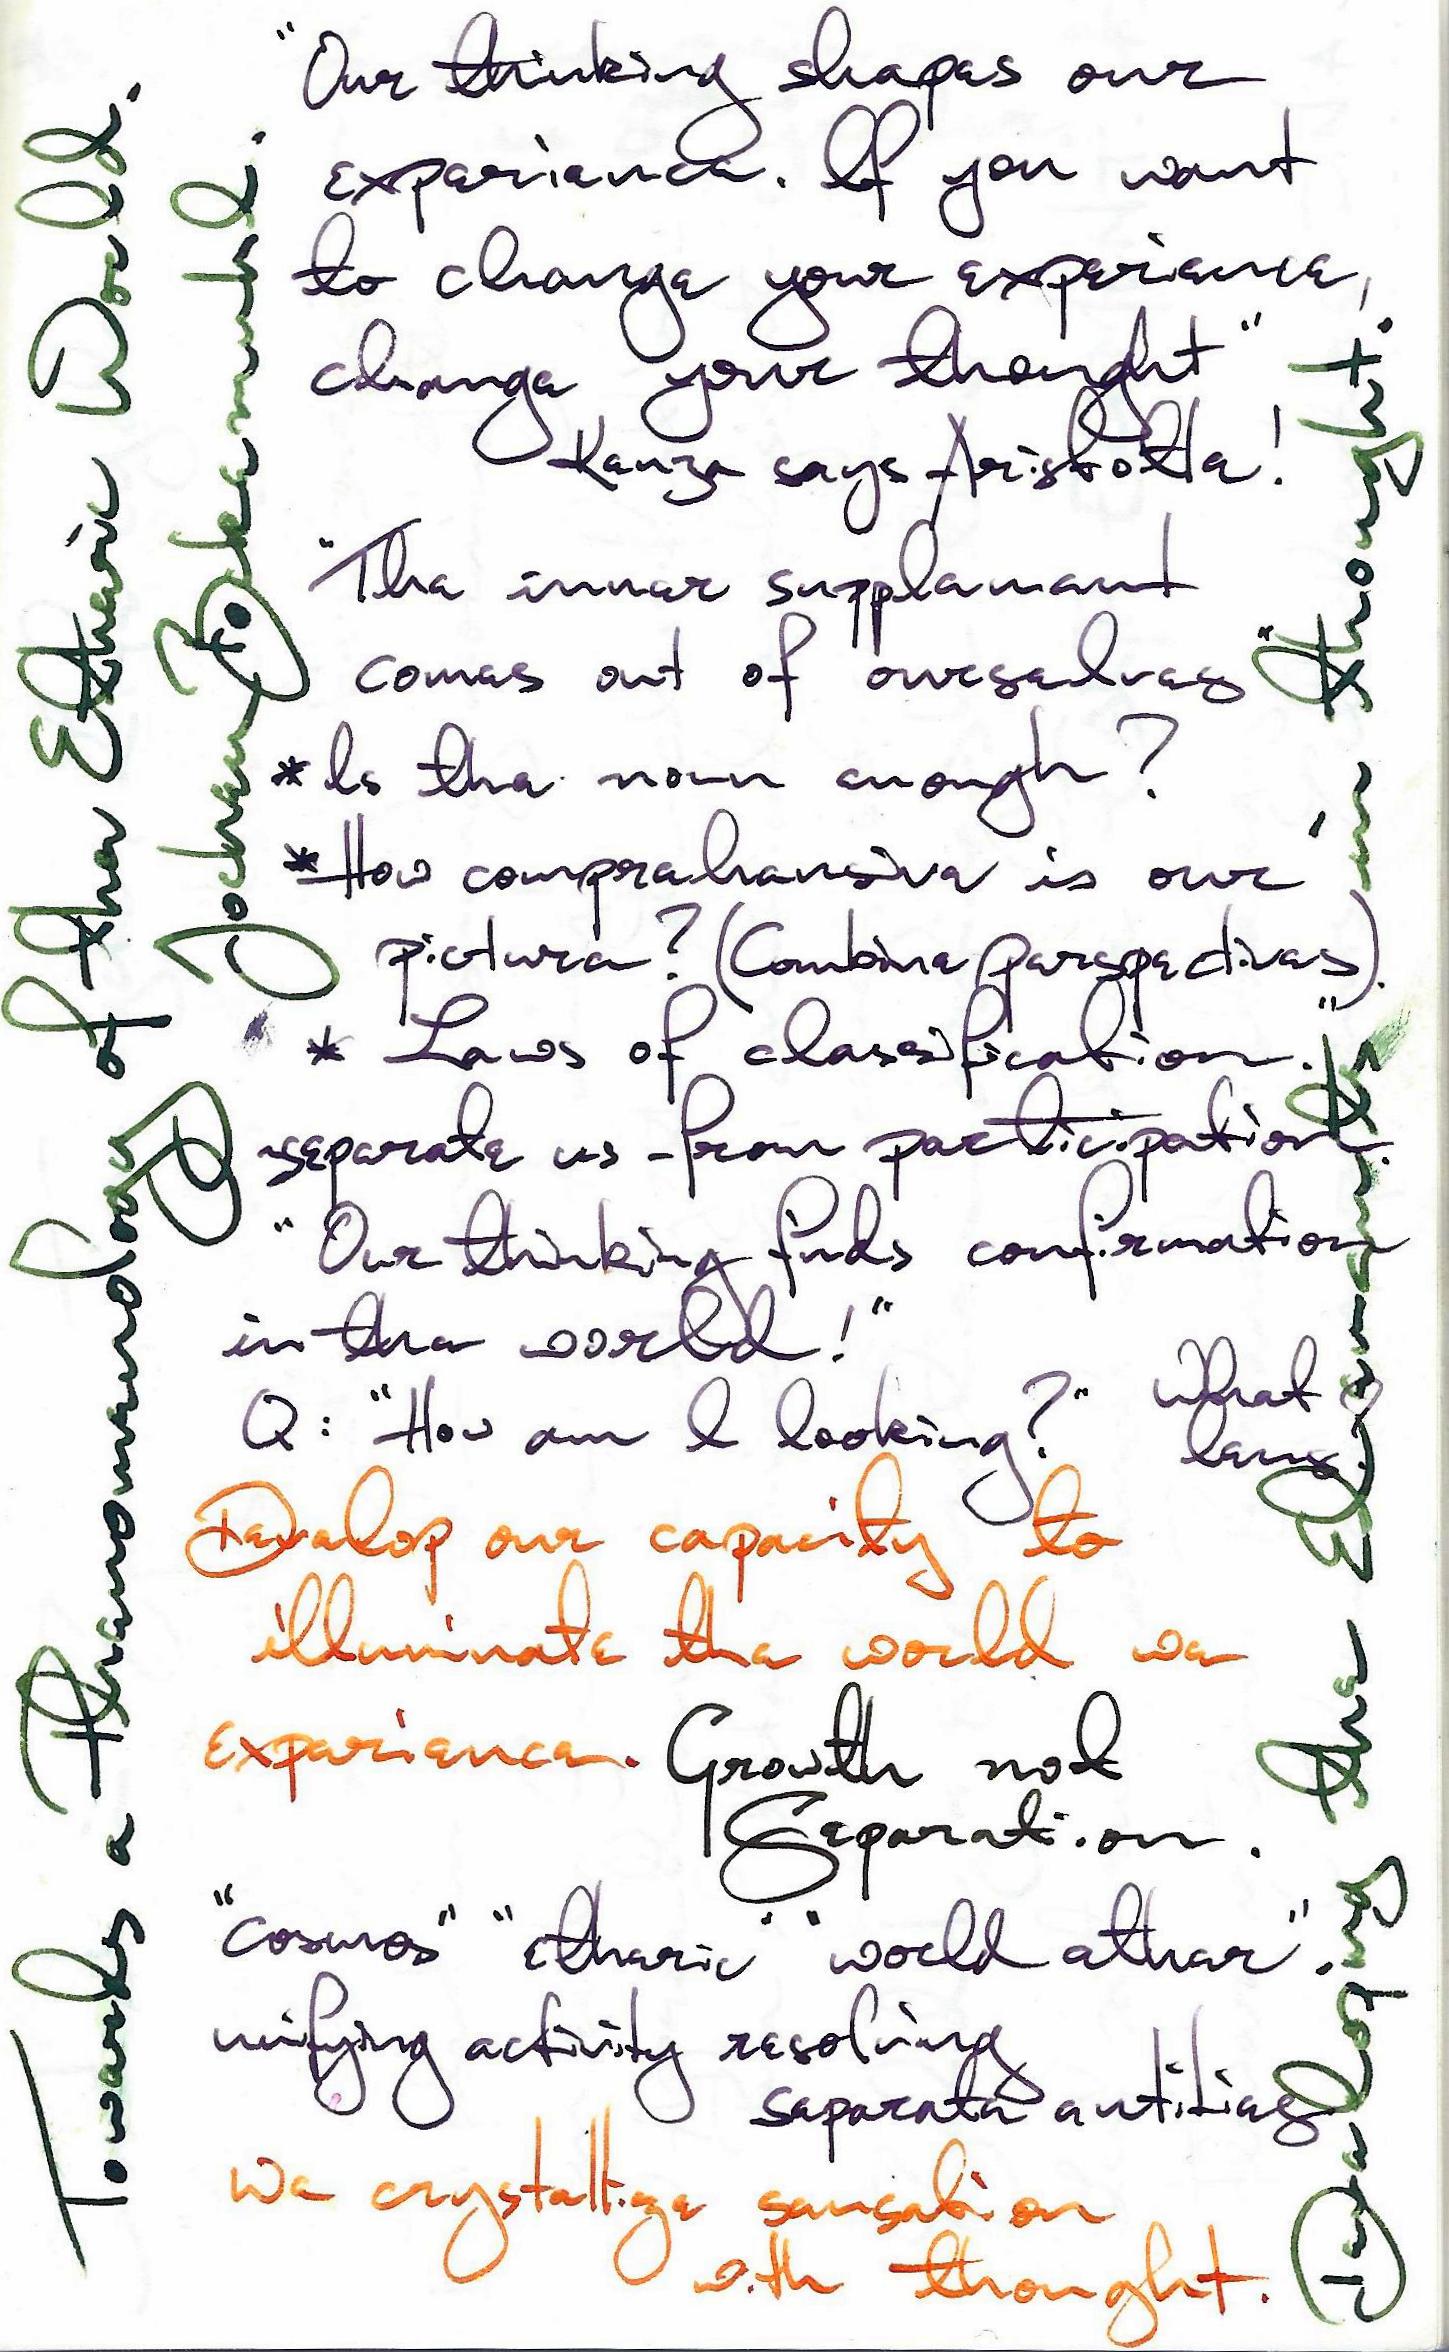 Towards a Phenomenology of the Etheric World.
Jochen Bockemühl.
"Our thinking shapes our
experience. If you want
to change your experience,
change your thought"
says Aristotle!
"The inner supplement
comes out of ourselves
* Is the noun enough?
* How comprehensive is our
picture? (Combine perspectives).
* Laws of classification."
separate us from participation.
"Our thinking finds confirmation
in the world!"
Q: "How am I looking?" What
lens.
Develop our capacity to
illuminate the world we
experience. Growth not
Separation.
"cosmos" "etheric" "world ether".
unifying activity resolving
separate entities
We crystallize sensation
with thought.
Developing the Elements in "thought".